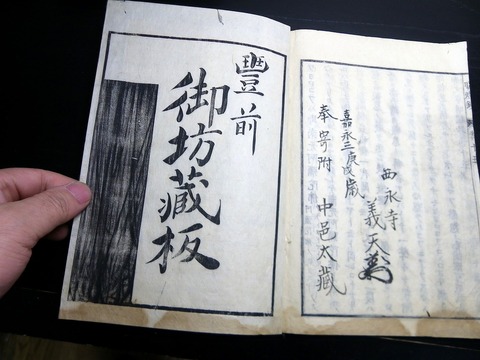 西永寺
義天
嘉永三庚戌歳
奉寄附 中邑太藏
豐前
御坊藏板